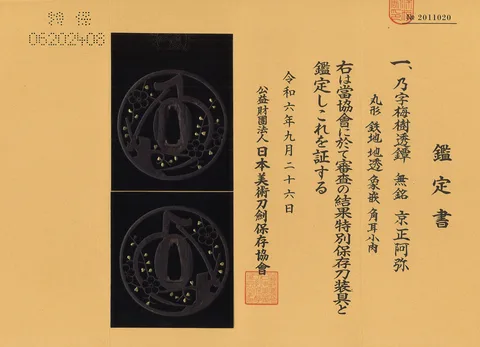 № 2011020
鑑定書
一、乃字梅樹透鐔 無銘 京正阿弥
丸形 鉄地 地透 象嵌 角耳小肉
右は當協會に於て審査の結果特別保存刀装具と
鑑定しこれを証する
令和六年九月二十六日
公益財團法人 日本美術刀劍保存協會
特保
06202408